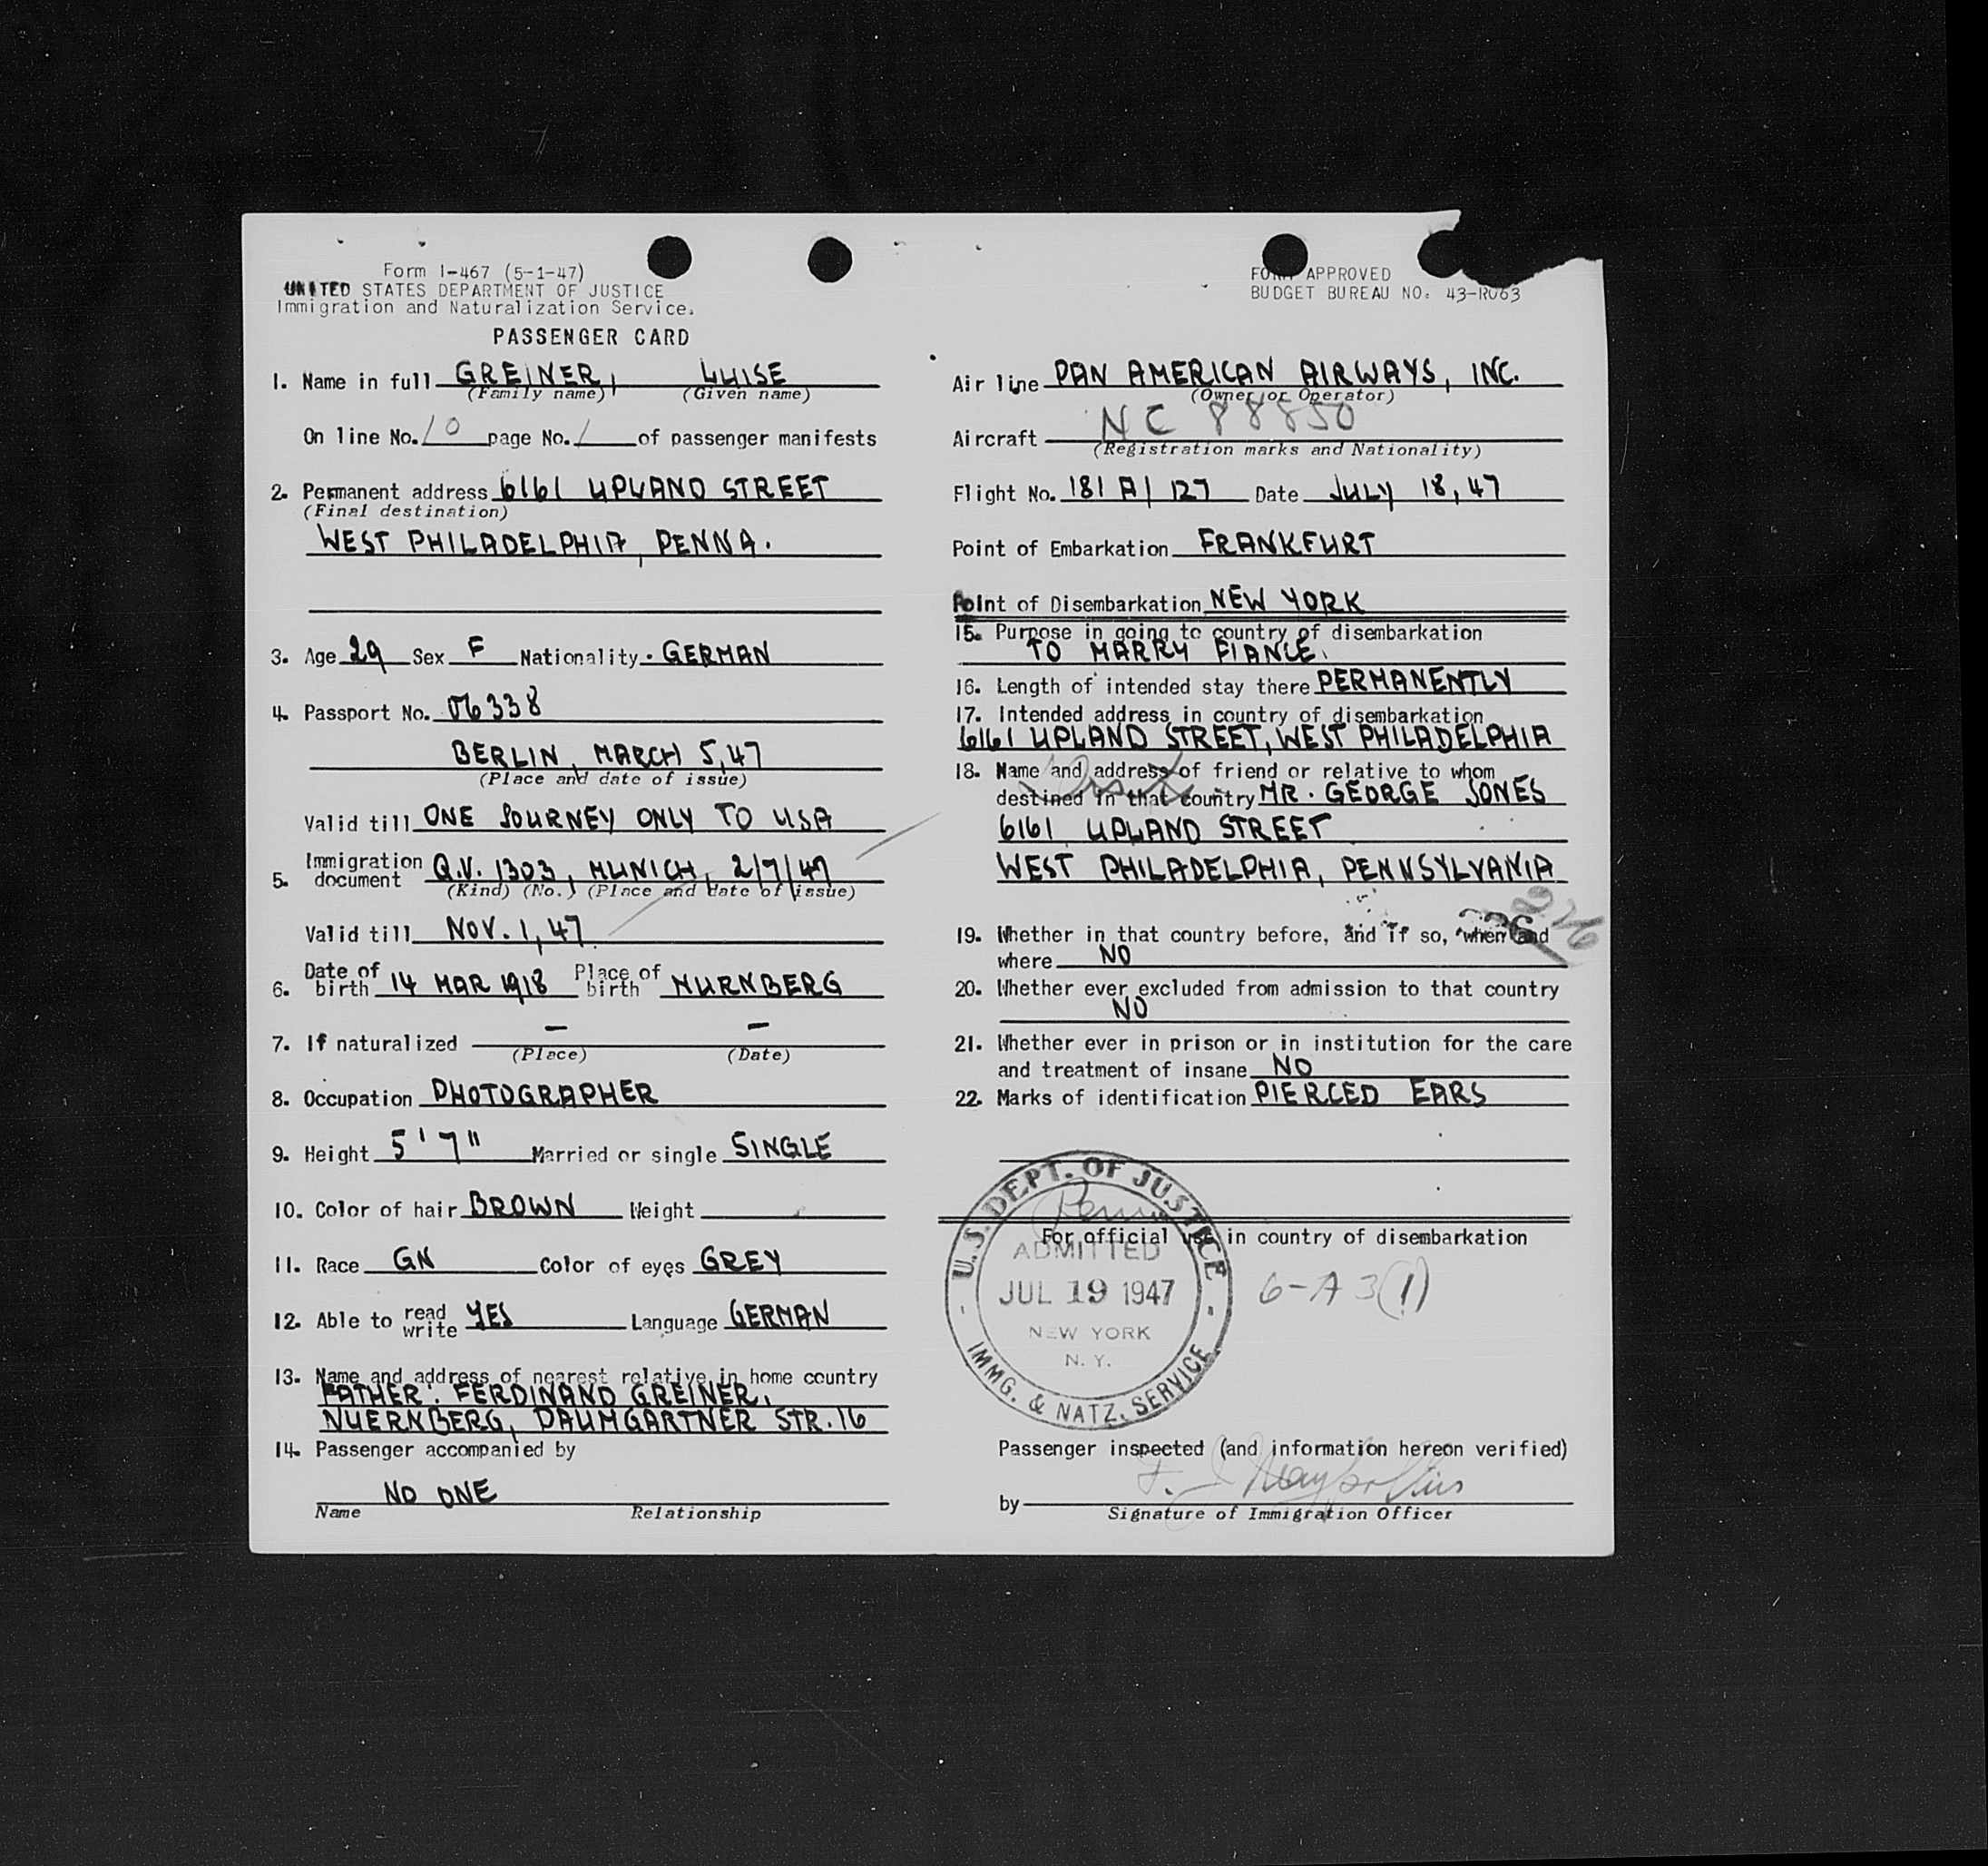 Form I-467 (5-1-47)
UNITED STATES DEPARTMENT OF JUSTICE
Immigration and Naturalization Service.
PASSENGER CARD
1. Name in full GREINER, LUISE
(Family name) (Given name)
On line No. 10 page No. 1 of passenger manifests
2. Permanent address 6161 UPLAND STREET
(Final destination)
WEST PHILADELPHIA, PENNA.
3. Age 29 Sex F Nationality GERMAN
4. Passport No. 06338
BERLIN, MARCH 5, 47
(Place and date of issue)
Valid till ONE JOURNEY ONLY TO USA
5. Immigration document Q.V. 1303, MUNICH, 2/7/47
(Kind) (No.) (Place and date of issue)
Valid till NOV. 1, 47
6. Date of birth 14 MAR 1918 Place of birth NURNBERG
7. If naturalized — —
(Place) (Date)
8. Occupation PHOTOGRAPHER
9. Height 5' 7" Married or single SINGLE
10. Color of hair BROWN Weight
11. Race GN Color of eyes GREY
12. Able to read write YES Language GERMAN
13. Name and address of nearest relative in home country
FATHER: FERDINAND GREINER,
NUERNBERG, DAUMGARTNER STR. 16
14. Passenger accompanied by
NO ONE
Name Relationship
FORM APPROVED
BUDGET BUREAU NO. 43-R063
Air line PAN AMERICAN AIRWAYS, INC.
(Owner or Operator)
Aircraft NC 88850
(Registration marks and Nationality)
Flight No. 181 A/ 127 Date JULY 18, 47
Point of Embarkation FRANKFURT
Point of Disembarkation NEW YORK
15. Purpose in going to country of disembarkation
TO MARRY FIANCE.
16. Length of intended stay there PERMANENTLY
17. Intended address in country of disembarkation
6161 UPLAND STREET, WEST PHILADELPHIA
18. Name and address of friend or relative to whom
destined in that country MR. GEORGE JONES
6161 UPLAND STREET
WEST PHILADELPHIA, PENNSYLVANIA
19. Whether in that country before, and if so, when and
where NO
20. Whether ever excluded from admission to that country
NO
21. Whether ever in prison or in institution for the care
and treatment of insane NO
22. Marks of identification PIERCED EARS
For official use in country of disembarkation
U.S. DEPT. OF JUSTICE
ADMITTED
JUL 19 1947
NEW YORK
N. Y.
IMMG. & NATZ. SERVICE
6-A 3(1)
Passenger inspected (and information hereon verified)
by
Signature of Immigration Officer